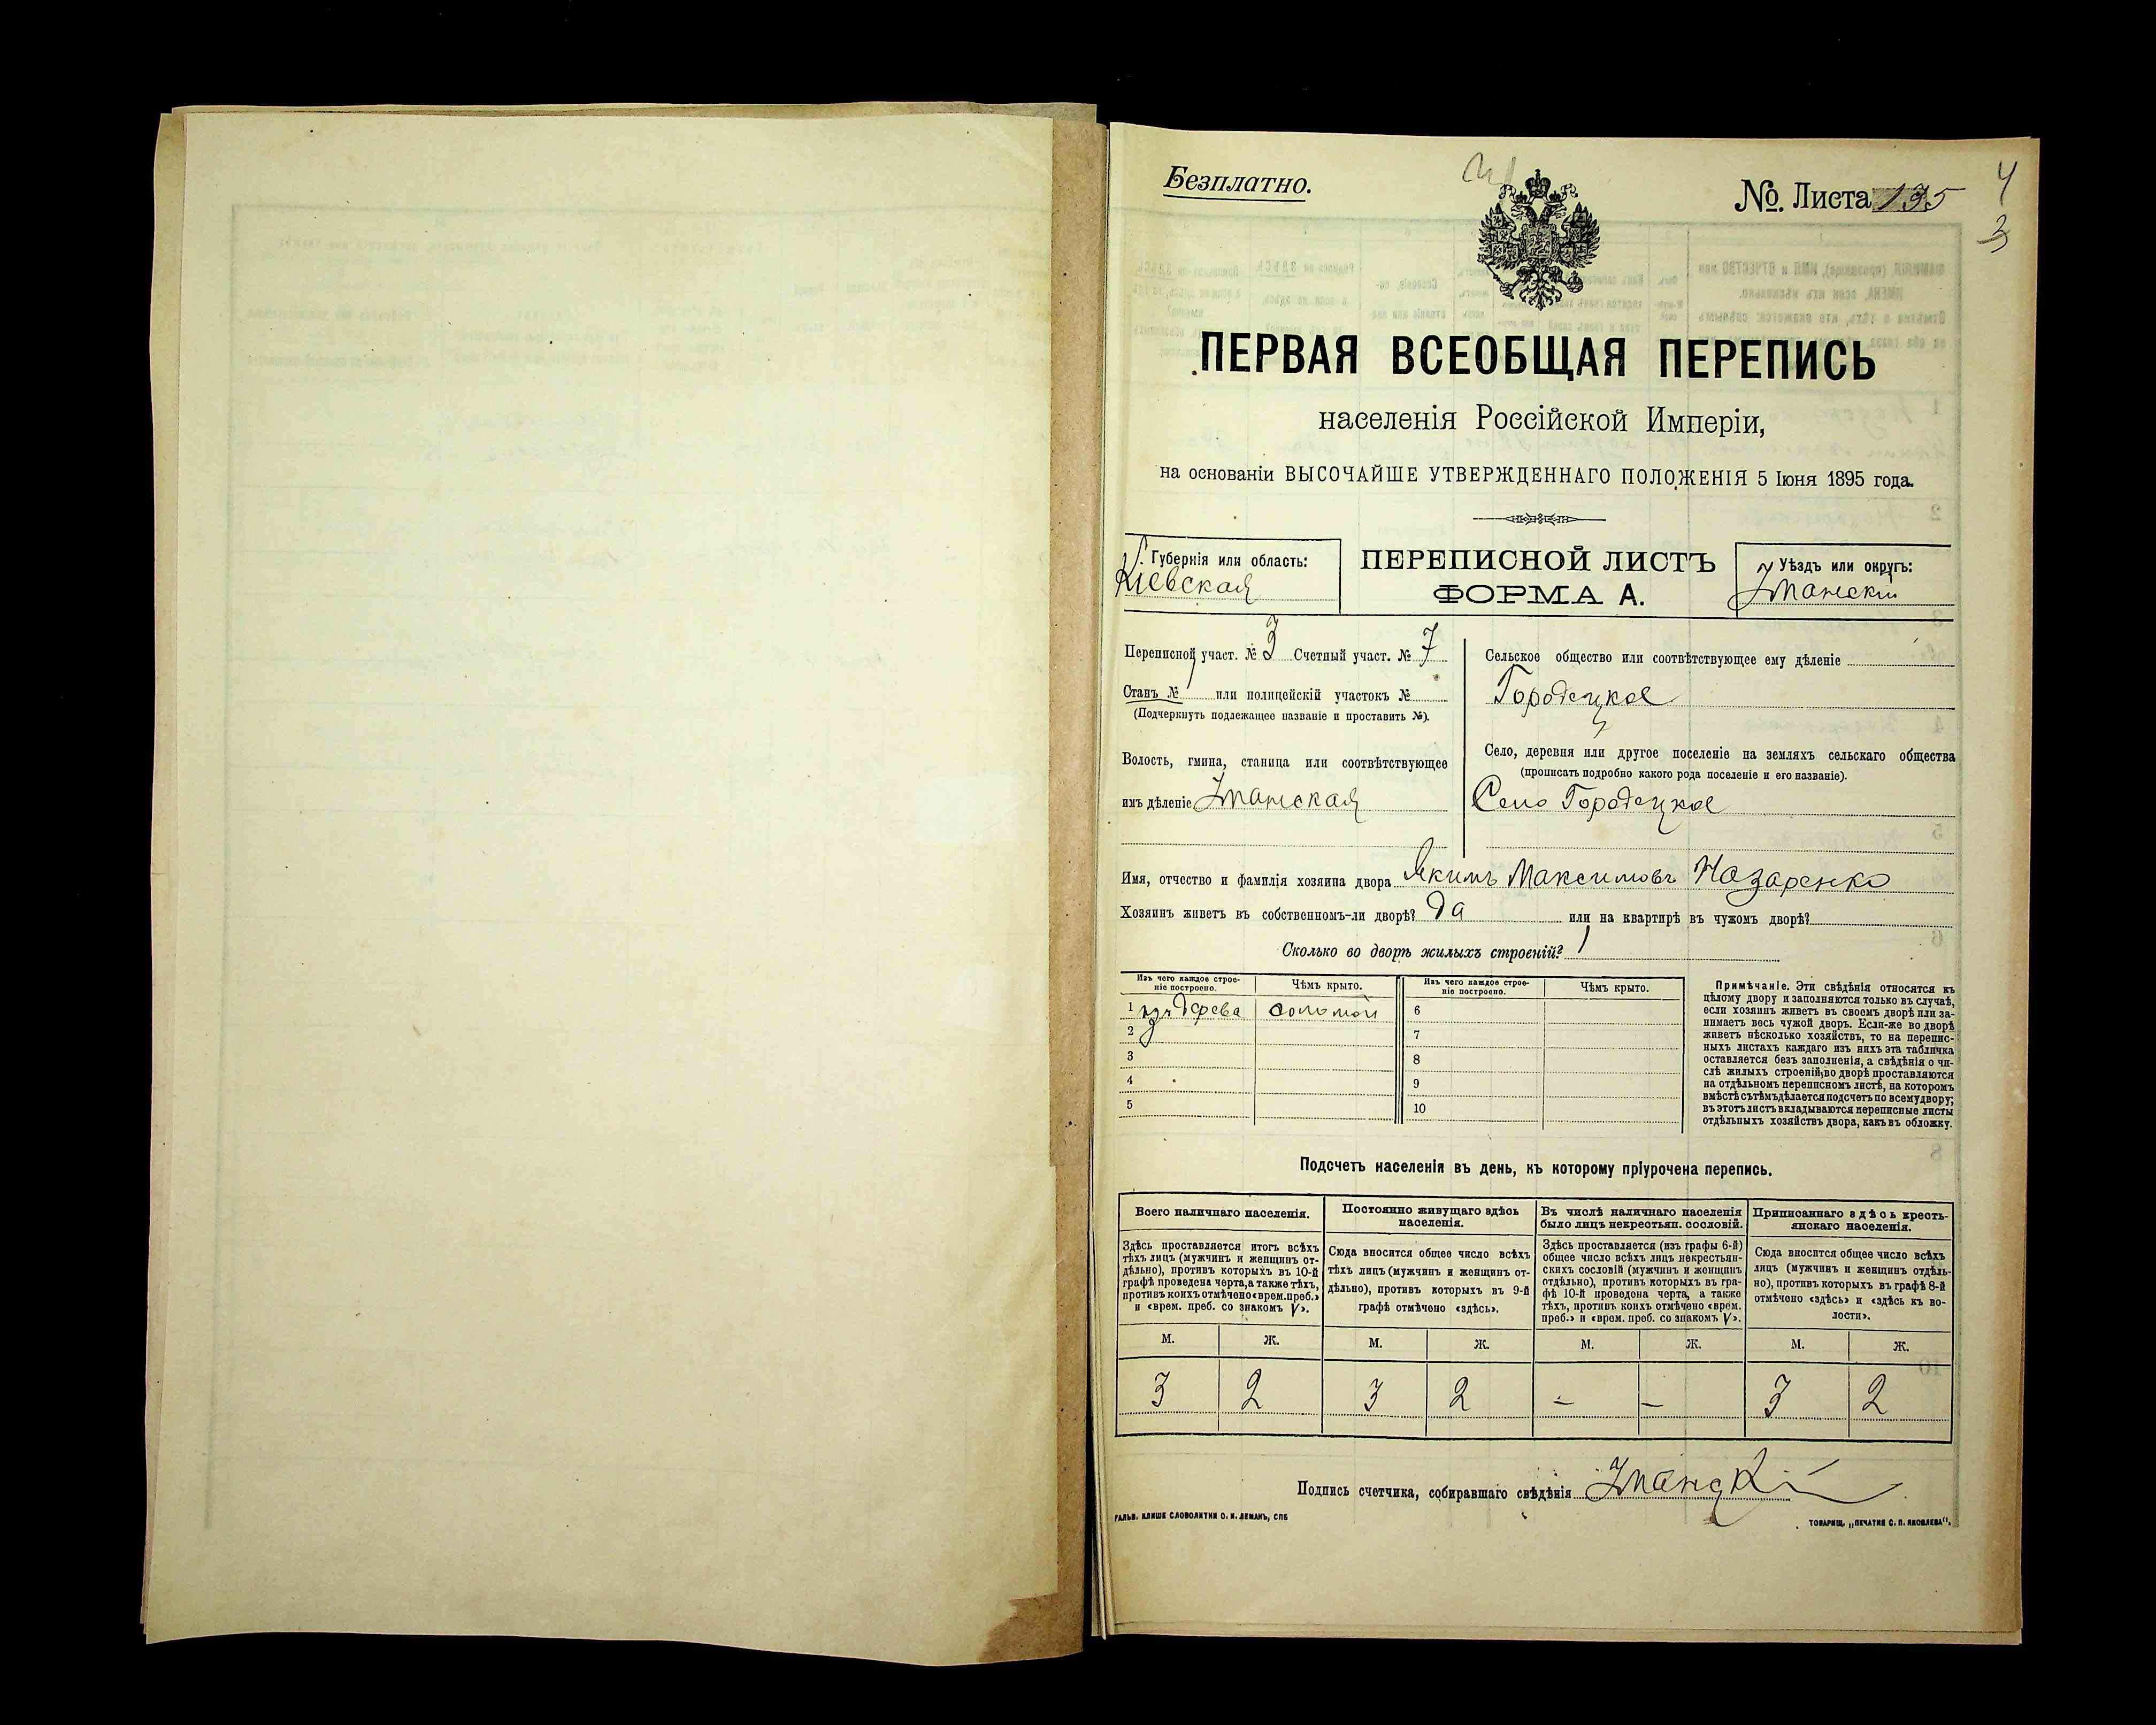 Безплатно.
№. Листа 135
4
3
ПЕРВАЯ ВСЕОБЩАЯ ПЕРЕПИСЬ
населенія Россійской Имперіи,
на основаніи ВЫСОЧАЙШЕ УТВЕРЖДЕННАГО ПОЛОЖЕНІЯ 5 Іюня 1895 года.
Губернія или область:
Кіевская
ПЕРЕПИСНОЙ ЛИСТЪ
ФОРМА А.
Уѣздъ или округъ:
Уманскій
Переписной участ. № 3 Счетный участ. № 7
Станъ № или полицейскій участокъ №
(Подчеркнуть подлежащее названіе и проставить №).
Волость, гмина, станица или соотвѣтствующее
имъ дѣленіе Уманская
Сельское общество или соотвѣтствующее ему дѣленіе
Городецкое
Село, деревня или другое поселеніе на земляхъ сельскаго общества
(прописать подробно какого рода поселеніе и его названіе).
Село Городецкое
Имя, отчество и фамилія хозяина двора Якимъ Максимовъ Назаренко
Хозяинъ живетъ въ собственномъ-ли дворѣ? Да или на квартирѣ въ чужомъ дворѣ?
Сколько во дворѣ жилыхъ строеній? 1
Изъ чего каждое строе-
ніе построено.
Чѣмъ крыто.
Изъ чего каждое строе-
ніе построено.
Чѣмъ крыто.
1 изъ дерева соломой 6
2 7
3 8
4 9
5 10
Примѣчаніе. Эти свѣдѣнія относятся къ
цѣлому двору и заполняются только въ случаѣ,
если хозяинъ живетъ въ своемъ дворѣ или за-
нимаетъ весь чужой дворъ. Если-же во дворѣ
живетъ нѣсколько хозяйствъ, то на перепис-
ныхъ листахъ каждаго изъ нихъ эта табличка
оставляется безъ заполненія, а свѣдѣнія о чи-
слѣ жилыхъ строеній во дворѣ проставляются
на отдѣльномъ переписномъ листѣ, на которомъ
вмѣстѣ съ тѣмъ дѣлается подсчетъ по всему двору;
въ этотъ листъ вкладываются переписные листы
отдѣльныхъ хозяйствъ двора, какъ въ обложку.
Подсчетъ населенія въ день, къ которому пріурочена перепись.
Всего наличнаго населенія.
Здѣсь проставляется итогъ всѣхъ
тѣхъ лицъ (мужчинъ и женщинъ от-
дѣльно), противъ которыхъ въ 10-й
графѣ проведена черта, а также тѣхъ,
противъ коихъ отмѣчено «врем. преб.»
и «врем. преб. со знакомъ V».
Постоянно живущаго здѣсь
населенія.
Сюда вносится общее число всѣхъ
тѣхъ лицъ (мужчинъ и женщинъ от-
дѣльно), противъ которыхъ въ 9-й
графѣ отмѣчено «здѣсь».
Въ числѣ наличнаго населенія
было лицъ некрестьян. сословій.
Здѣсь проставляется (изъ графы 6-й)
общее число всѣхъ лицъ некрестьян-
скихъ сословій (мужчинъ и женщинъ
отдѣльно), противъ которыхъ въ гра-
фѣ 10-й проведена черта, а также
тѣхъ, противъ коихъ отмѣчено «врем.
преб.» и «врем. преб. со знакомъ V».
Приписаннаго здѣсь кресть-
янскаго населенія.
Сюда вносится общее число всѣхъ
лицъ (мужчинъ и женщинъ отдѣль-
но), противъ которыхъ въ графѣ 8-й
отмѣчено «здѣсь» и «здѣсь къ во-
лости».
М. Ж. М. Ж. М. Ж. М. Ж.
3 2 3 2 - - 3 2
Подпись счетчика, собиравшаго свѣдѣнія
ГАЛЬВ. КЛИШЕ СЛОВОЛИТНИ О. И. ЛЕМАНЪ, СПБ
ТОВАРИЩ. „ПЕЧАТНЯ С. П. ЯКОВЛЕВА".